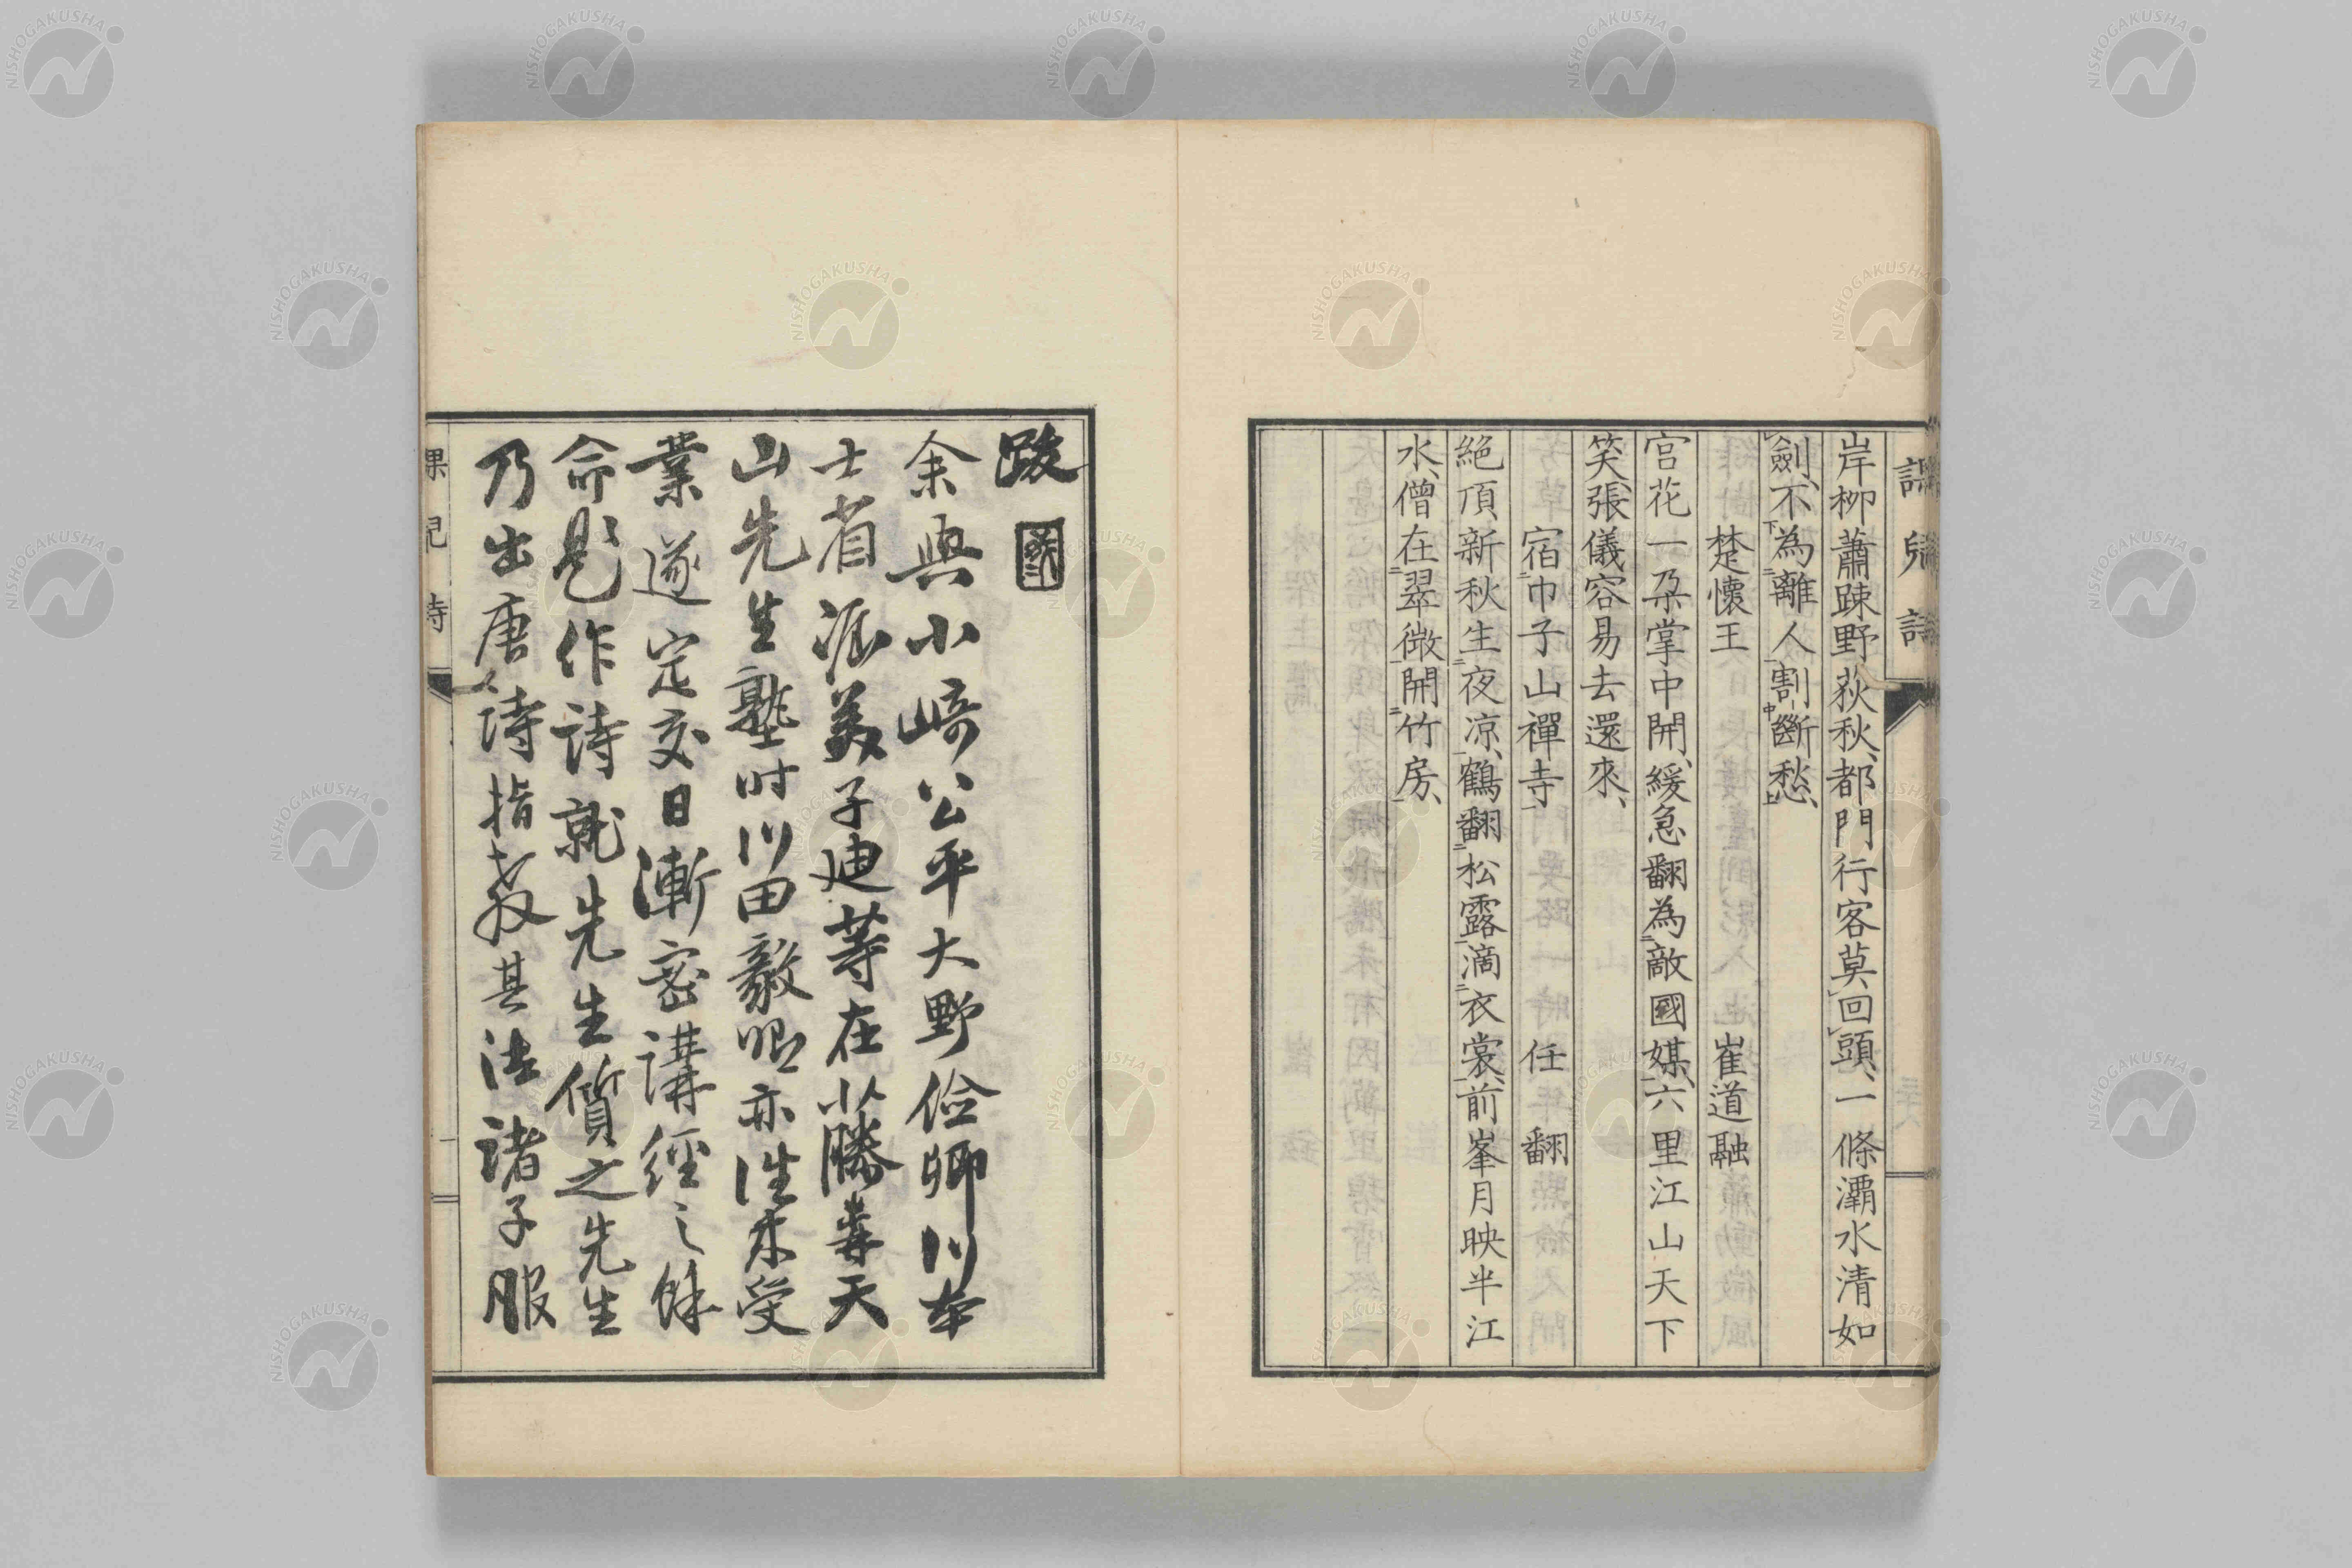 課兒詩
岸柳蕭踈野荻秋、都門行客莫回頭、一條灞水清如
劍、不為離人割斷愁、
楚懷王　崔道融
宮花一朶掌中開、緩急翻為敵國媒、六里江山天下
笑、張儀容易去還來、
宿巾子山禪寺　任翻
絕頂新秋生夜涼、鶴翻松露滴衣裳、前峯月映半江
水、僧在翠微開竹房、
跋
余與小﨑公平大野儉卿川本
士省派美子迪等在小藤毒天
山先生塾時川田毅卿亦往來受
業遂定交日漸密講經之餘
命題作詩就先生質之先生
乃出唐人詩指教其法諸子服
課兒詩
NISHOGAKUSHA